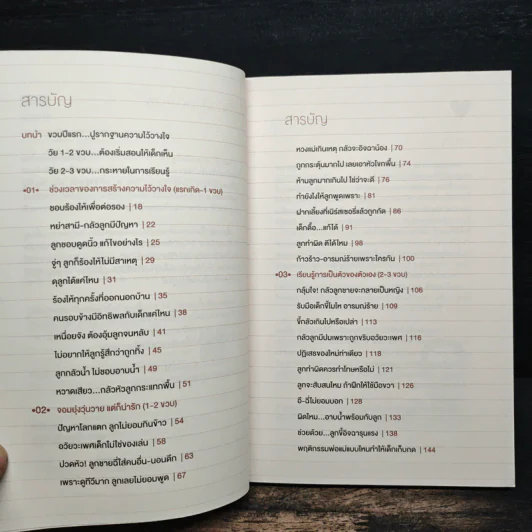 สารบัญ
บทนำ ขวบปีแรก...ปูรากฐานความไว้วางใจ
วัย 1-2 ขวบ...ต้องเริ่มสอนให้เด็กเห็น
วัย 2-3 ขวบ...กระหายในการเรียนรู้
•01• ช่วงเวลาของการสร้างความไว้วางใจ (แรกเกิด-1 ขวบ)
ชอบร้องให้เพื่อต่อรอง | 18
หย่าสามี-กลัวลูกมีปัญหา | 22
ลูกชอบดูดนิ้ว แก้ไขอย่างไร | 25
จู่ๆ ลูกก็ร้องไห้ไม่มีสาเหตุ | 29
ดุลูกได้แค่ไหน | 31
ร้องไห้ทุกครั้งที่ออกนอกบ้าน | 35
คนรอบข้างมีอิทธิพลกับเด็กแค่ไหน | 38
เหนื่อยจัง ต้องอุ้มลูกจนหลับ | 41
ไม่อยากให้ลูกรู้สึกว่าถูกทิ้ง | 45
ลูกกลัวน้ำ ไม่ชอบอาบน้ำ | 49
หวาดเสียว...กลัวหัวลูกกระแทกพื้น | 51
•02• จอมยุ่งวุ่นวาย แต่ก็น่ารัก (1-2 ขวบ)
ปัญหาโลกแตก ลูกไม่ยอมกินข้าว | 54
อวัยวะเพศเด็กไม่ใช่ของเล่น | 58
ปวดหัว! ลูกชายฉี่ใส่คนอื่น-นอนดึก | 63
เพราะดูทีวีมาก ลูกเลยไม่ยอมพูด | 67
สารบัญ
หวงแม่เกินเหตุ กลัวจะอิจฉาน้อง | 70
ถูกกระตุ้นมากไป เลยเอาหัวโขกพื้น | 74
ห้ามลูกมากเกินไป ใช่ว่าจะดี | 76
ทำยังไงให้ลูกพูดเพราะ | 81
ฝากเลี้ยงที่เนิร์สเซอรี่แล้วถูกกัด | 86
เด็กดื้อ...แก้ได้ | 91
ลูกทำผิด ตีได้ไหม | 98
ก้าวร้าว-อารมณ์ร้ายเพราะใครกัน | 100
•03• เรียนรู้การเป็นตัวของตัวเอง (2-3 ขวบ)
กลุ้มใจ! กลัวลูกชายจะกลายเป็นหญิง | 106
รับมือเด็กขี้โมโห อารมณ์ร้าย | 109
ขี้กลัวเกินไปหรือเปล่า | 113
กลัวลูกมีปมเพราะถูกขริบอวัยวะเพศ | 116
ปฏิเสธของใหม่ท่าเดียว | 118
ลูกทำผิดควรทำโทษหรือไม่ | 121
ลูกจะสับสนไหม ถ้าฝึกให้ใช้มือขวา | 126
อึ-ฉี่ไม่ยอมบอก | 128
ผิดไหม...อาบน้ำพร้อมกับลูก | 133
ช่วยด้วย...ลูกขี้อิจฉารุนแรง | 138
พฤติกรรมพ่อแม่แบบไหนทำให้เด็กเก็บกด | 144